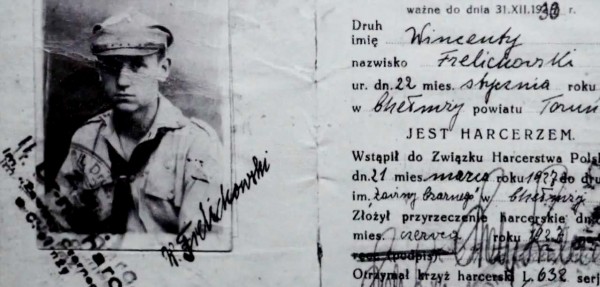 ważne do dnia 31.XII.1930 r.
Druh
imię Wincenty
nazwisko Frelichowski
ur. dn. 22 mies. stycznia roku
w Chełmży powiatu Toruń
JEST HARCERZEM.
Wstąpił do Związku Harcerstwa Pols
dn. 21 mies. marca roku 1927 do dru
im. "Zawiszy Czarnego" w Chełmży
Złożył przyrzeczenie harcerskie dn.
mies. czerwca roku 1927
(podpis)
Otrzymał krzyż harcerski L. 632 serj
W. Frelichowski